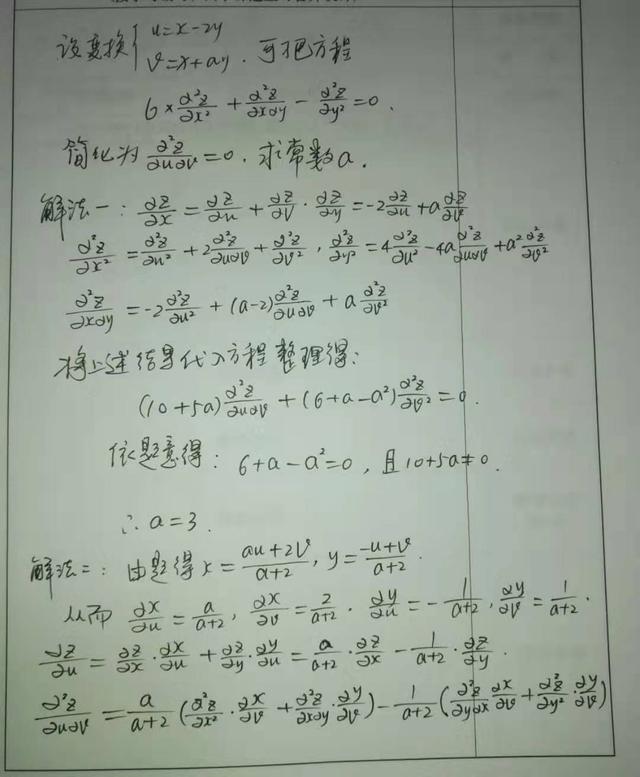 设变换{u=x-2y
v=x+ay. 可把方程
6×∂²z/∂x² + ∂²z/∂x∂y - ∂²z/∂y² = 0.
简化为 ∂²z/∂u∂v = 0. 求常数a.
解法一: ∂z/∂x = ∂z/∂u + ∂z/∂v · ∂z/∂y = -2∂z/∂u + a∂z/∂v
∂²z/∂x² = ∂²z/∂u² + 2∂²z/∂u∂v + ∂²z/∂v², ∂²z/∂y² = 4∂²z/∂u² - 4a∂²z/∂u∂v + a²∂²z/∂v²
∂²z/∂x∂y = -2∂²z/∂u² + (a-2)∂²z/∂u∂v + a∂²z/∂v²
将上述结果代入方程整理得:
(10+5a)∂²z/∂u∂v + (6+a-a²)∂²z/∂v² = 0.
依题意得: 6+a-a²=0, 且10+5a≠0.
∴ a=3.
解法二: 由题得 x = (au+2v)/(a+2), y = (-u+v)/(a+2).
从而 ∂x/∂u = a/(a+2), ∂x/∂v = 2/(a+2). ∂y/∂u = -1/(a+2), ∂y/∂v = 1/(a+2).
∂z/∂u = ∂z/∂x · ∂x/∂u + ∂z/∂y · ∂y/∂u = a/(a+2) · ∂z/∂x - 1/(a+2) · ∂z/∂y.
∂²z/∂u∂v = a/(a+2) (∂²z/∂x² · ∂x/∂v + ∂²z/∂x∂y · ∂y/∂v) - 1/(a+2) (∂²z/∂y∂x · ∂x/∂v + ∂²z/∂y² · ∂y/∂v)